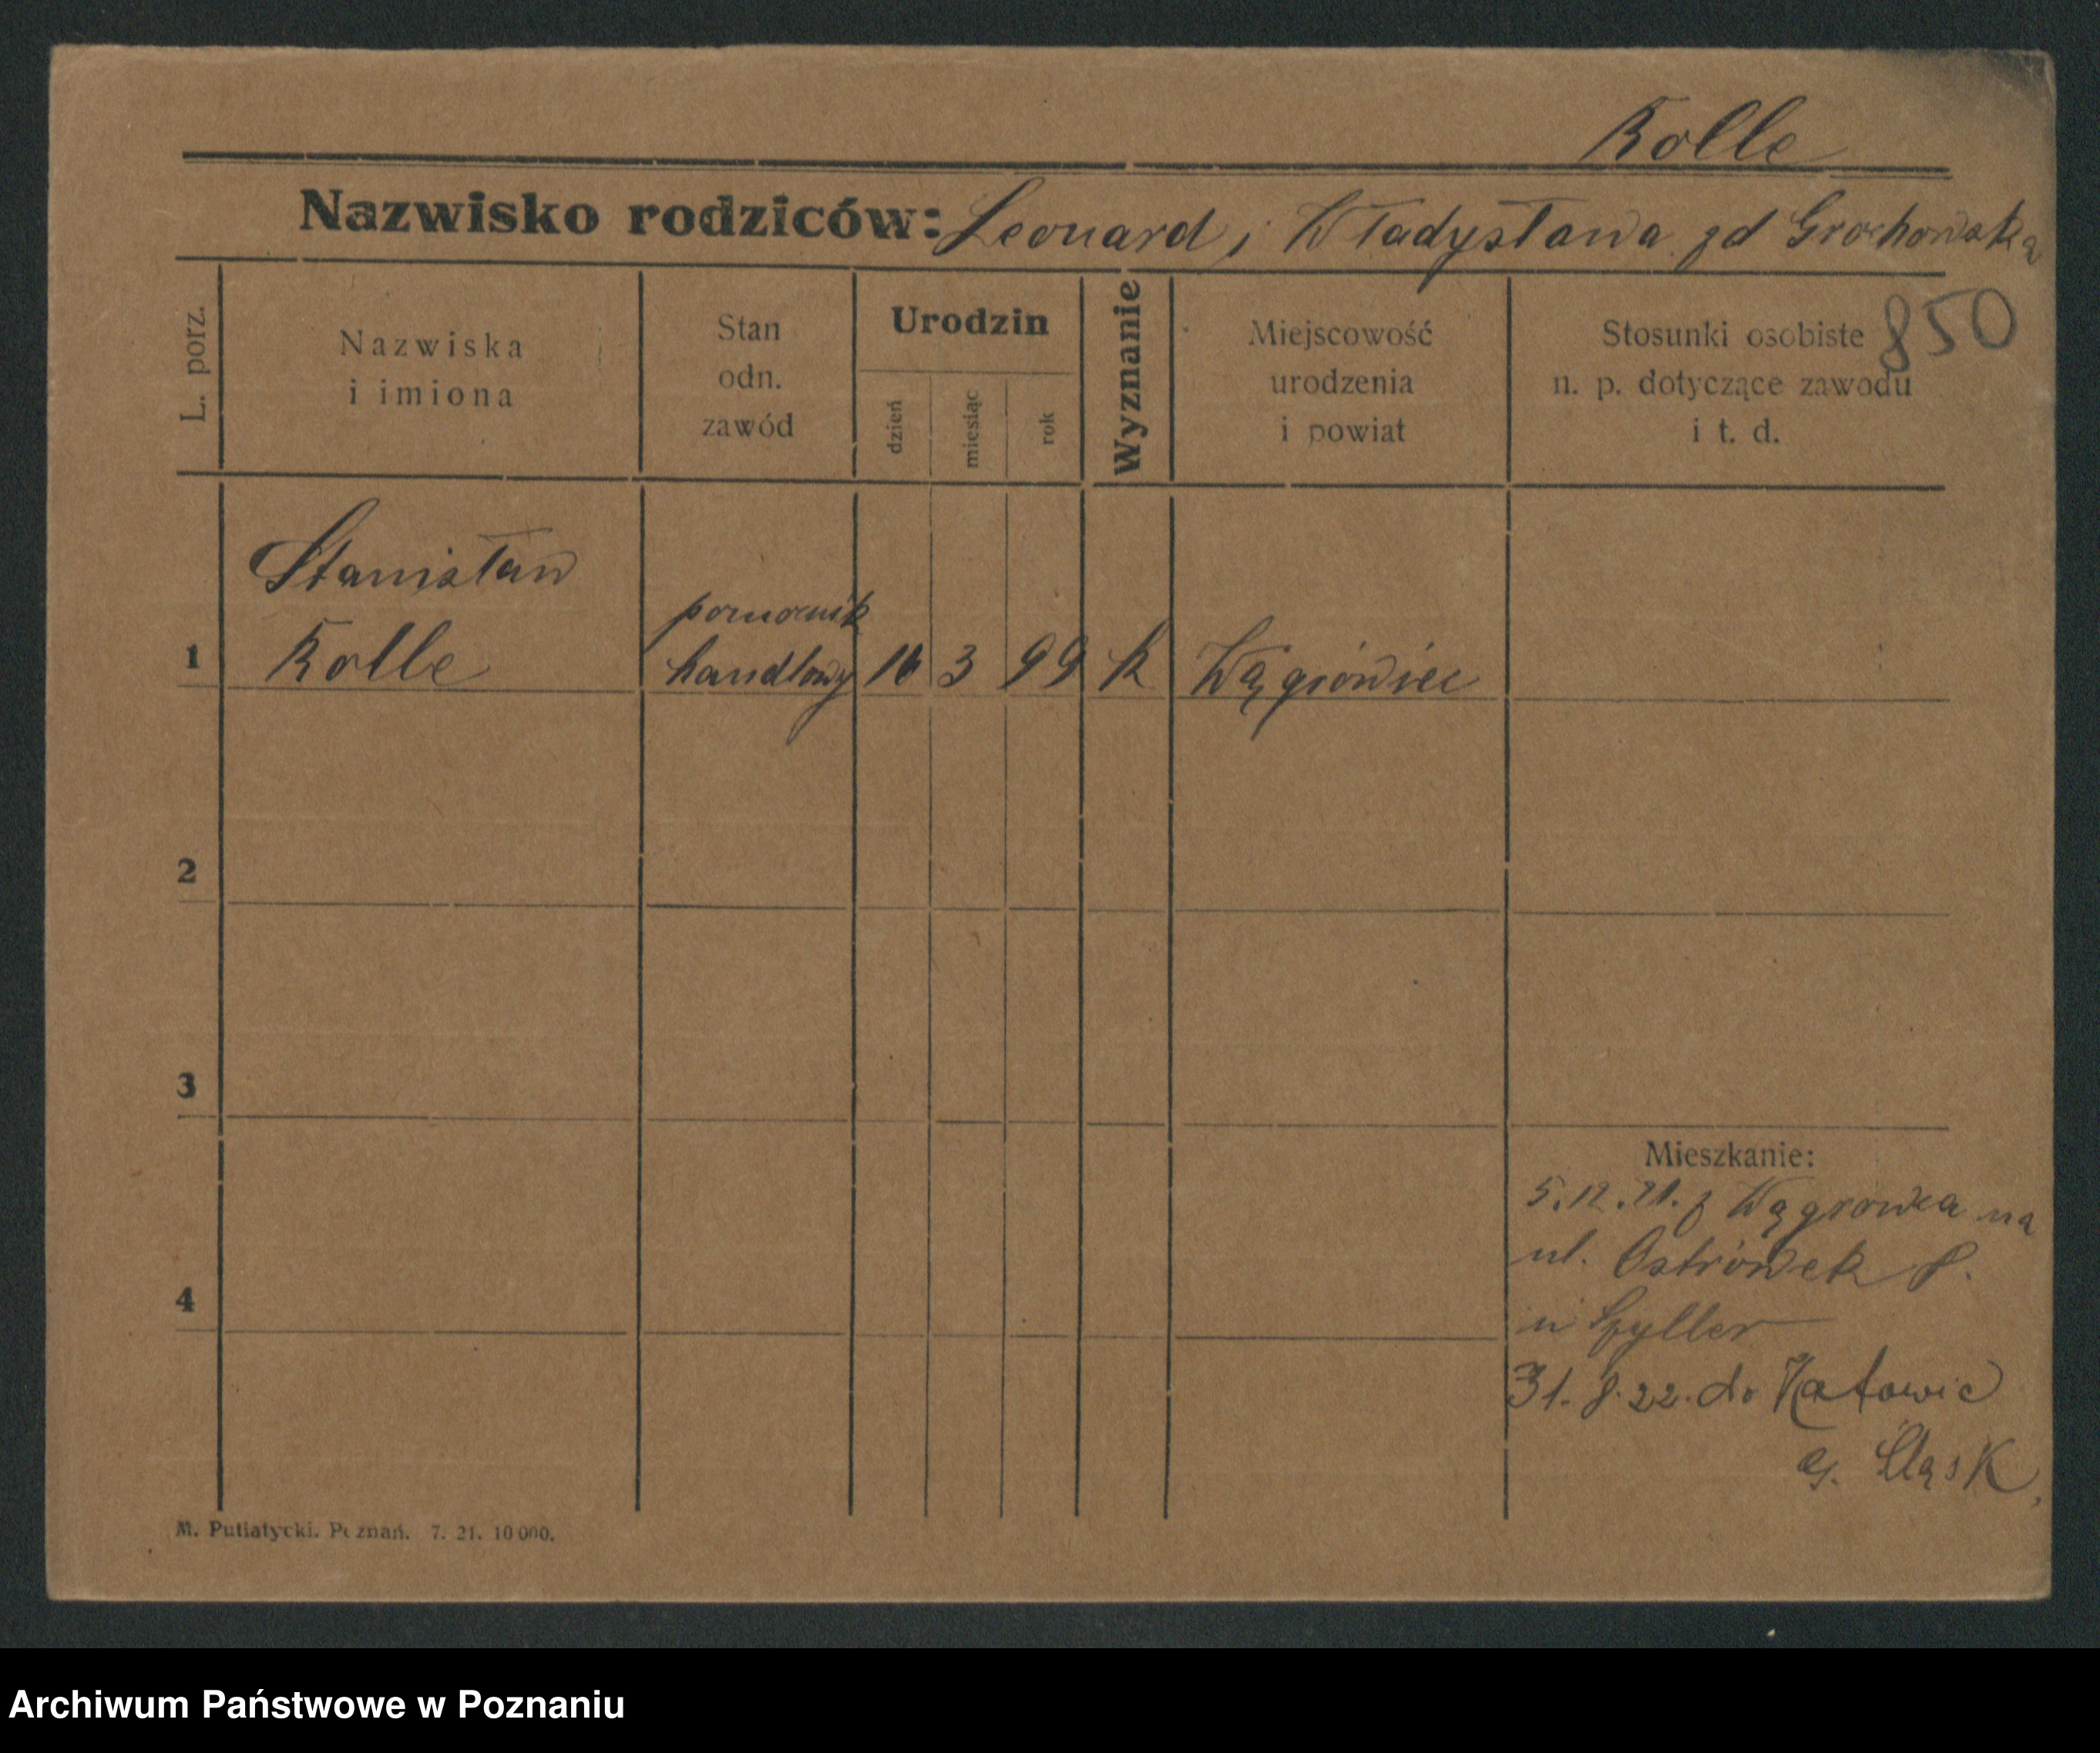 Rolle
Nazwisko rodziców: Leonard i Władysława zd Grochowska
850
L. porz.
Nazwiska
i imiona
Stan
odn.
zawód
Urodzin
dzień
miesiąc
rok
Wyznanie
Miejscowość
urodzenia
i powiat
Stosunki osobiste
n. p. dotyczące zawodu
i t. d.
1
Stanisław
Rolle
pomocnik
handlowy
16
3
99
K
Wągrówiec
2
3
4
Mieszkanie:
5.12.21. z Wągrowca na
ul. Ostrówek 8.
u Szyller
31. 8. 22. do Katowic
G. Śląsk.
M. Putiatycki. Poznań. 7. 21. 10 000.
Archiwum Państwowe w Poznaniu